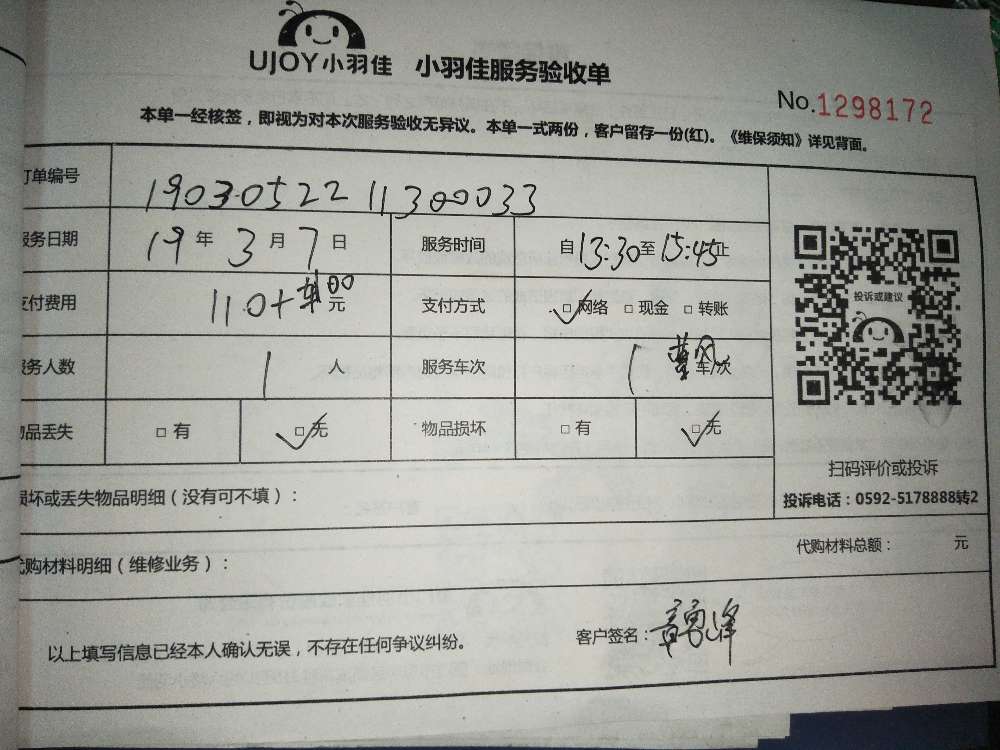 UJOY小羽佳 小羽佳服务验收单
No.1298172
本单一经核签，即视为对本次服务验收无异议。本单一式两份，客户留存一份(红)。《维保须知》详见背面。
订单编号 1903052211300033
服务日期 19年3月7日 服务时间 自13:30至15:45止
支付费用 110+ 元 支付方式 ☑网络 □现金 □转账
服务人数 1人 服务车次 1 车/次
物品丢失 □有 ☑无 物品损坏 □有 ☑无
投诉或建议
扫码评价或投诉
投诉电话：0592-5178888转2
损坏或丢失物品明细（没有可不填）：
代购材料明细（维修业务）： 代购材料总额： 元
以上填写信息已经本人确认无误，不存在任何争议纠纷。 客户签名：章勇峰